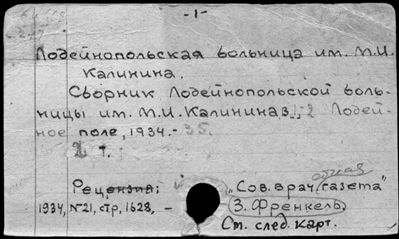 -1-
Лодейнопольская больница им. М.И.
Калинина.
Сборник Лодейнопольской боль-
ницы им. М.И. Калинина 1-2 Лодей-
ное поле, 1934.-35.
2 т.
Рецензия: „Сов. врач. газета"
1934, №21, стр. 1628, - З. Френкель
См. след. карт.